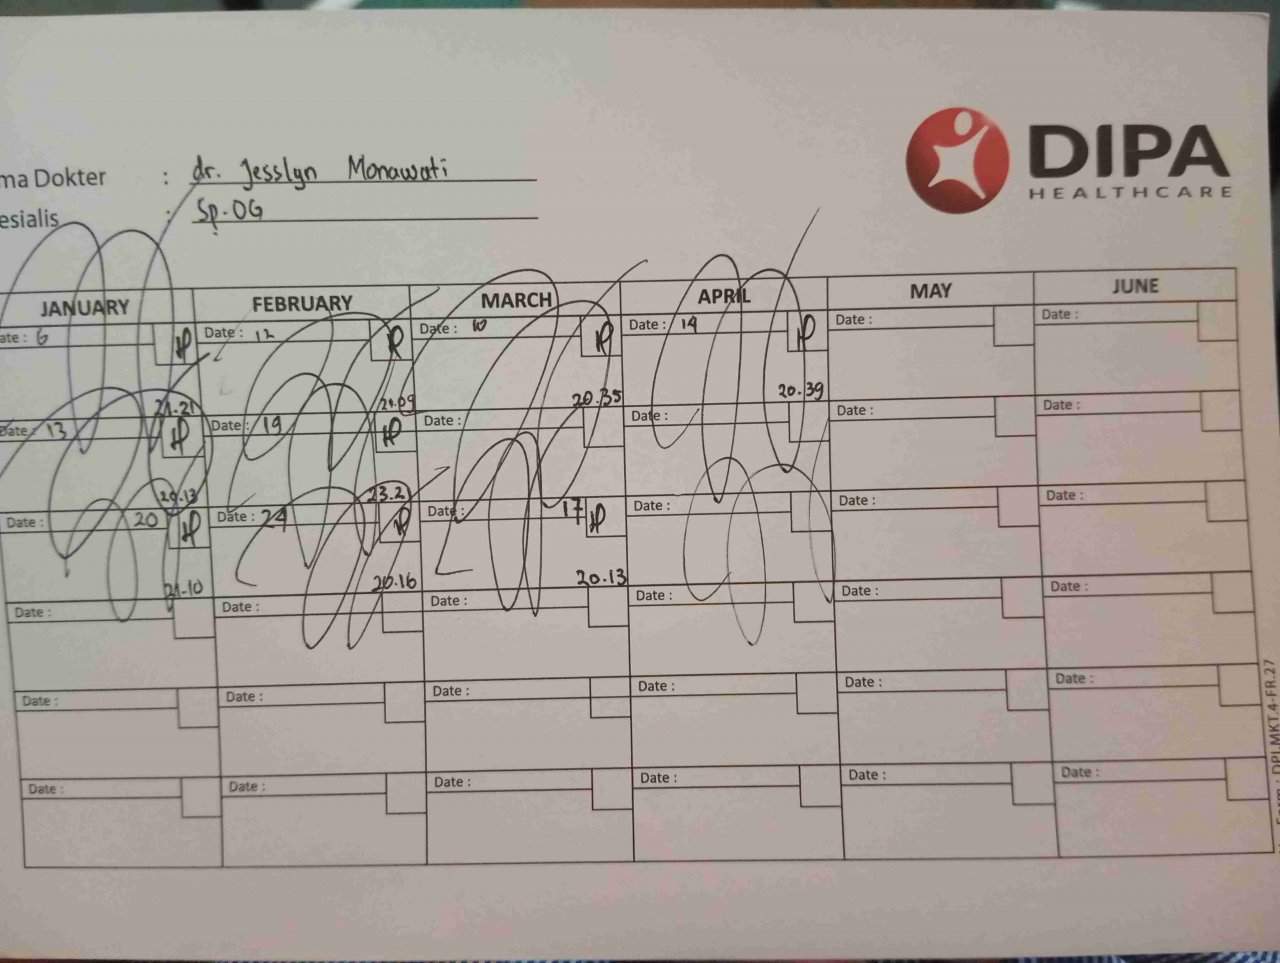 DIPA
HEALTHCARE
ma Dokter : dr. Jesslyn Monawati
esialis : Sp.OG
JANUARY FEBRUARY MARCH APRIL MAY JUNE
ate : 6 Date : 12 Date : 10 Date : 14 Date : Date :
21.21 21.09 20.35 20.39
Date : 13 Date : 19 Date : Date : Date : Date :
20.13 23.21
Date : 20 Date : 24 Date : 17 Date : Date : Date :
21.10 20.16 20.13
Date : Date : Date : Date : Date : Date :
Date : Date : Date : Date : Date : Date :
Date : Date : Date : Date : Date : Date :
Form : DPI.MKT.4-FR.27